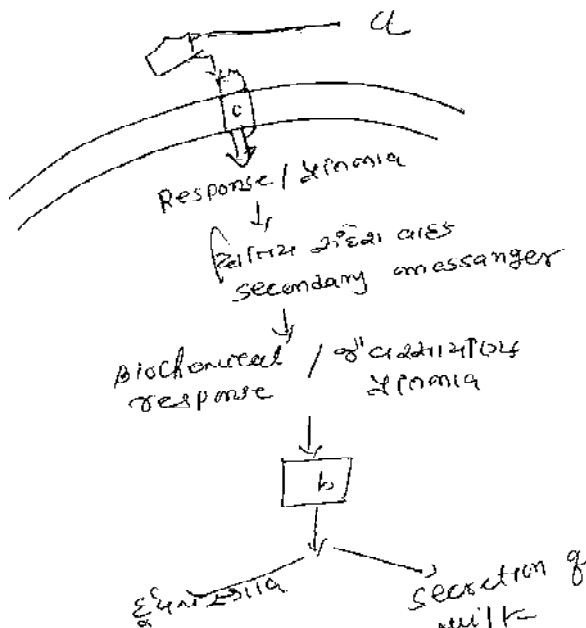 a
c
Response / પ્રતિચાર
દ્વિતિય સંદેશા વાહક
secondary messanger
Biochemical / જૈવરસાયણિક
response પ્રતિચાર
b
દુધનો સ્ત્રાવ
secretion of
milk